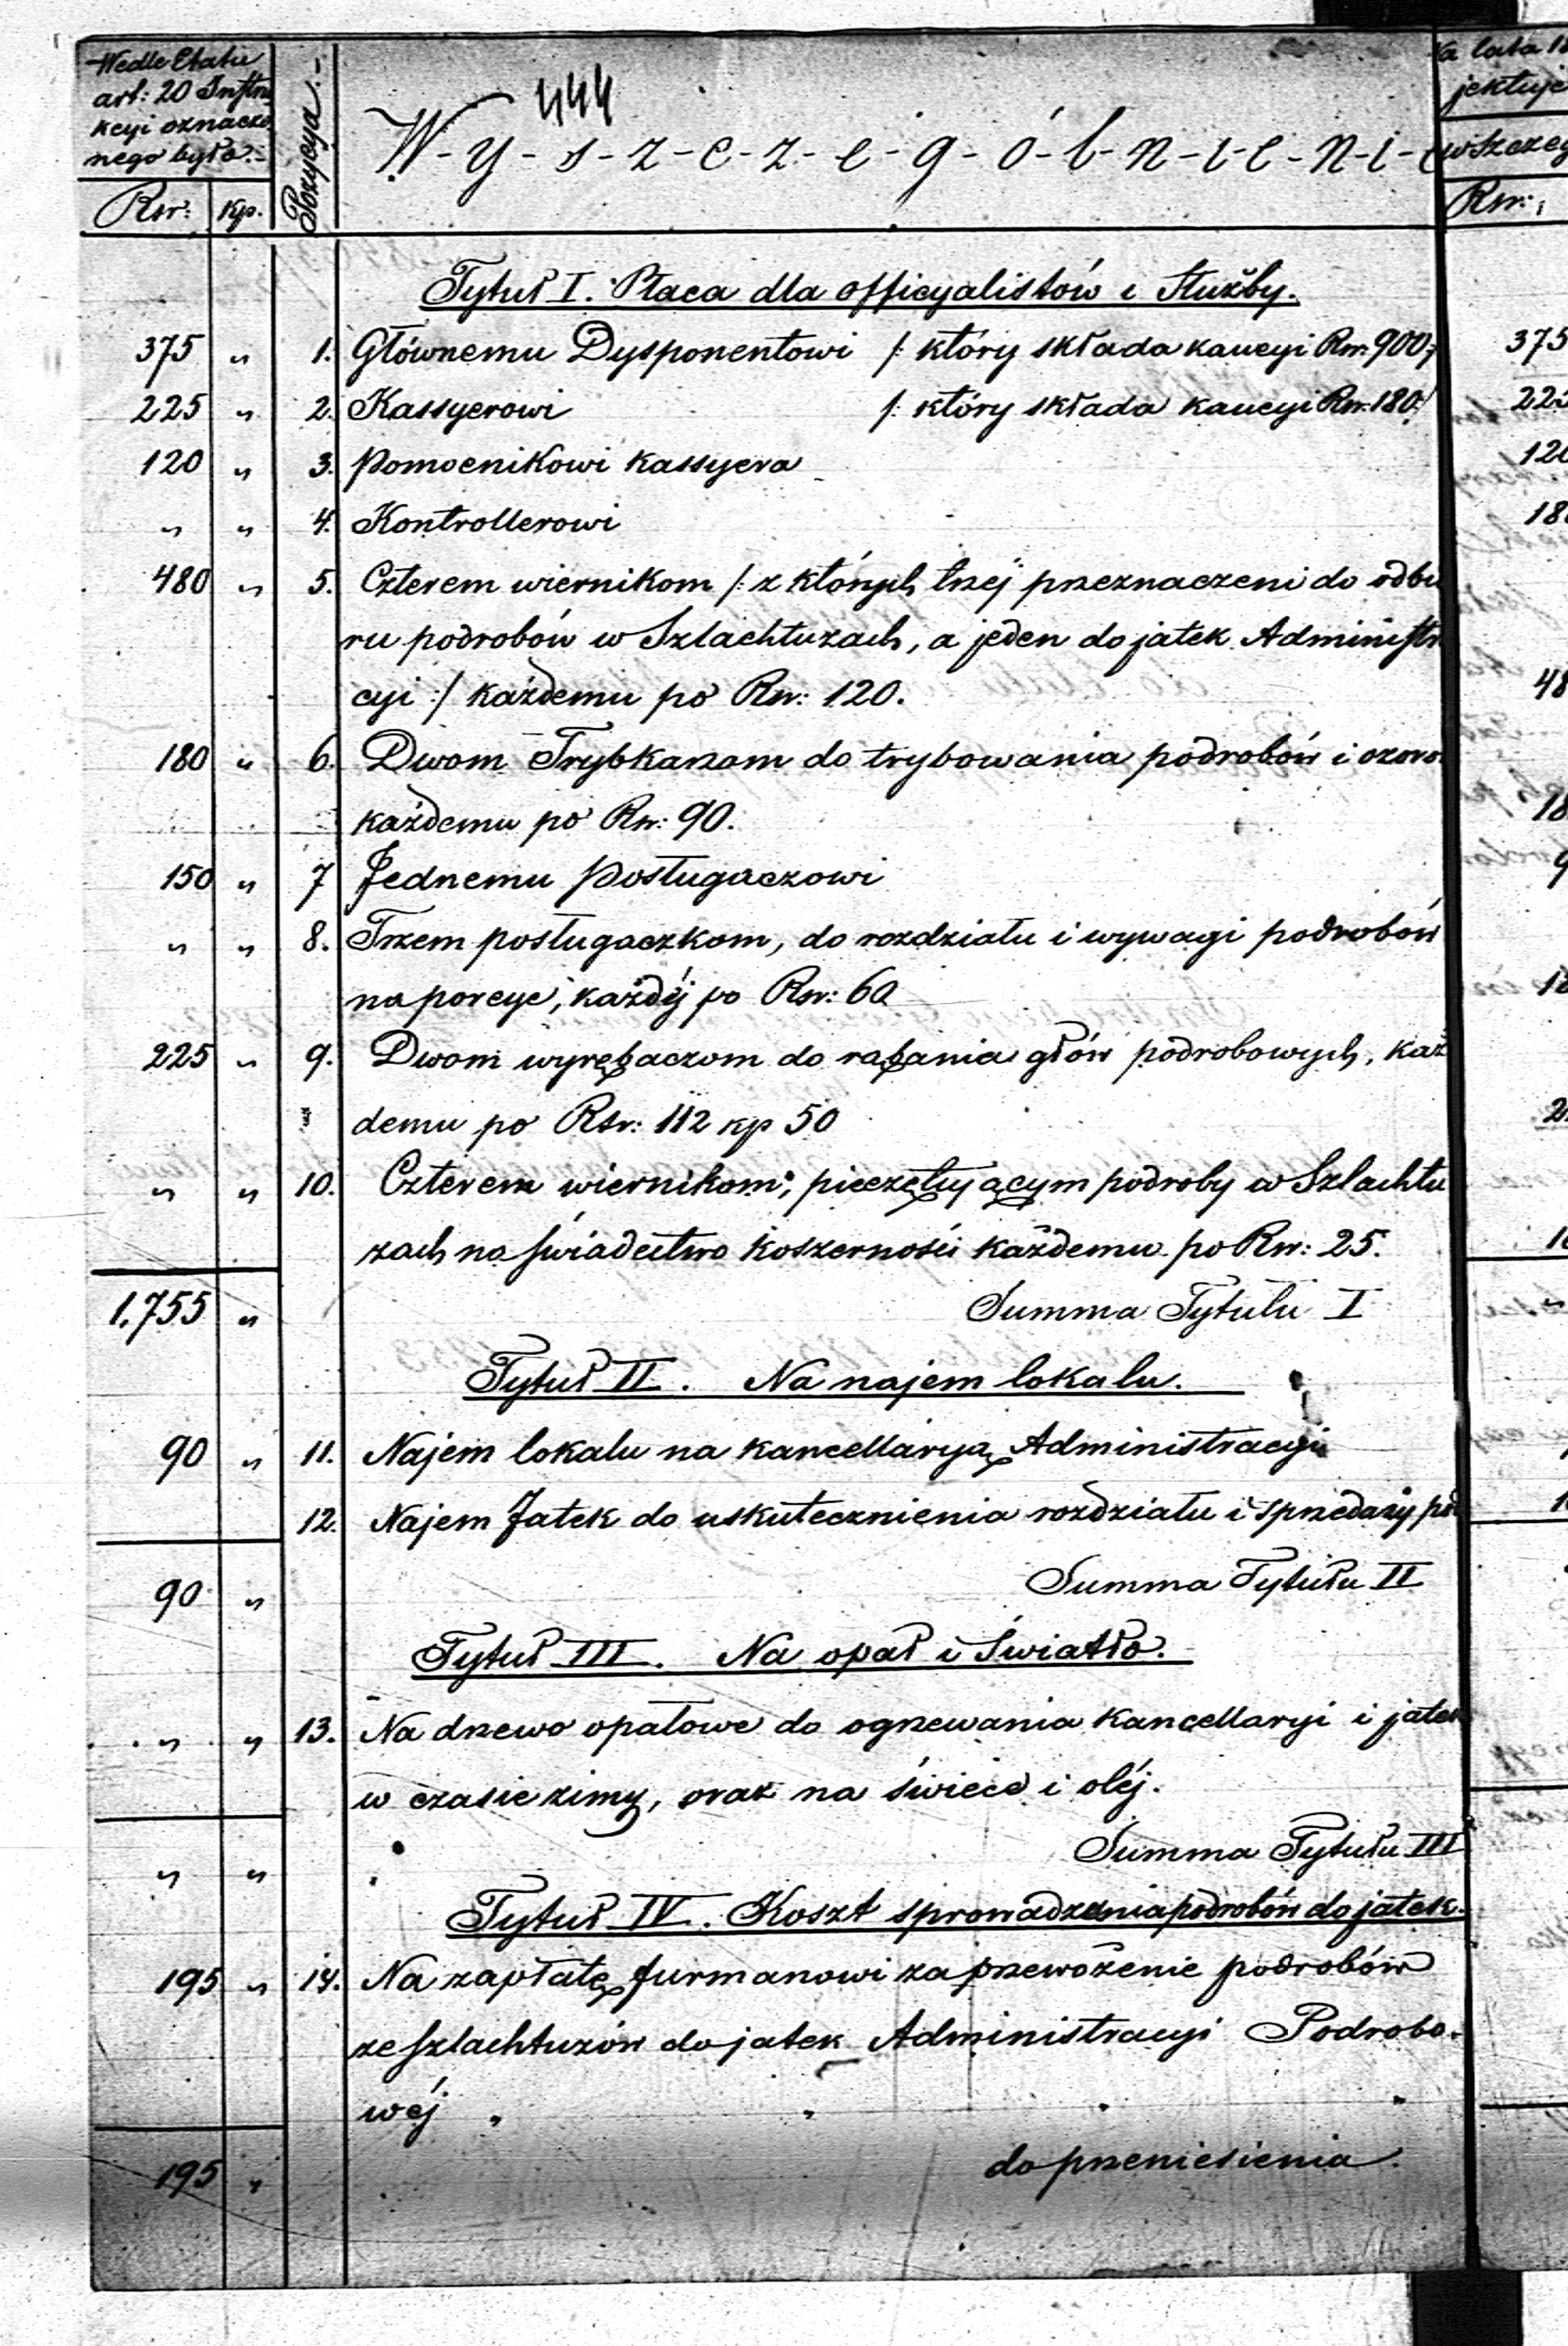 Wedle Etatu
art: 20 Instru
kcyi oznaczo
nego było.-
Rsr: kp.
Pozycya.-
444
W-y-s-z-c-z-e-g-ó-l-n-i-e-n-i-e
Na lata 18
jektuje
w Szczeg
Rsr:
Tytuł I. Płaca dla officyalistów i służby.
375 " 1. Głównemu Dysponentowi /: który składa kaucyi Rsr. 900 :/ 375
225 " 2. Kassyerowi /: który składa kaucyi Rsr: 180 :/ 225
120 " 3. Pomocnikowi kassyera 120
" " 4. Kontrollerowi 18
480 " 5. Czterem wiernikom /: z których trzéj przeznaczeni do odbio
ru podrobów w Szlachtuzach, a jeden do jatek Administra
cyi :/ każdemu po Rsr: 120. 48
180 " 6. Dwom Trybkarzom do trybowania podrobów i ozoro
każdemu po Rsr: 90. 18
150 " 7 Jednemu posługaczowi 9
" " 8. Trzem posługaczkom, do rozdziału i wywagi podrobów
na porcye, każdéj po Rsr: 60 18
225 " 9. Dwom wyrębaczom do rąbania głów podrobowych, każ
demu po Rsr: 112 kp 50 2
" " 10. Czterem wiernikom, pieczętującym podroby w Szlachtu
zach na świadectwo koszerności każdemu po Rsr: 25. 10
1.755 " Summa Tytułu I
Tytuł II. Na najem lokalu.
90 " 11. Najem lokalu na kancellaryą Administracyi
12. Najem Jatek do uskutecznienia rozdziału i sprzedaży pod 1
90 " Summa Tytułu II
Tytuł III. Na opał i Światło.
" " 13. Na drzewo opałowe do ogrzewania kancellaryi i jatek
w czasie zimy, oraz na świece i oléj.
" " Summa Tytułu III
Tytuł IV. Koszt sprowadzenia podrobów do jatek.
195 " 14. Na zapłatę furmanowi za przewożenie podrobów
ze szlachtuzów do jatek Administracyi Podrobo-
wéj " " " "
195 " do przeniesienia.